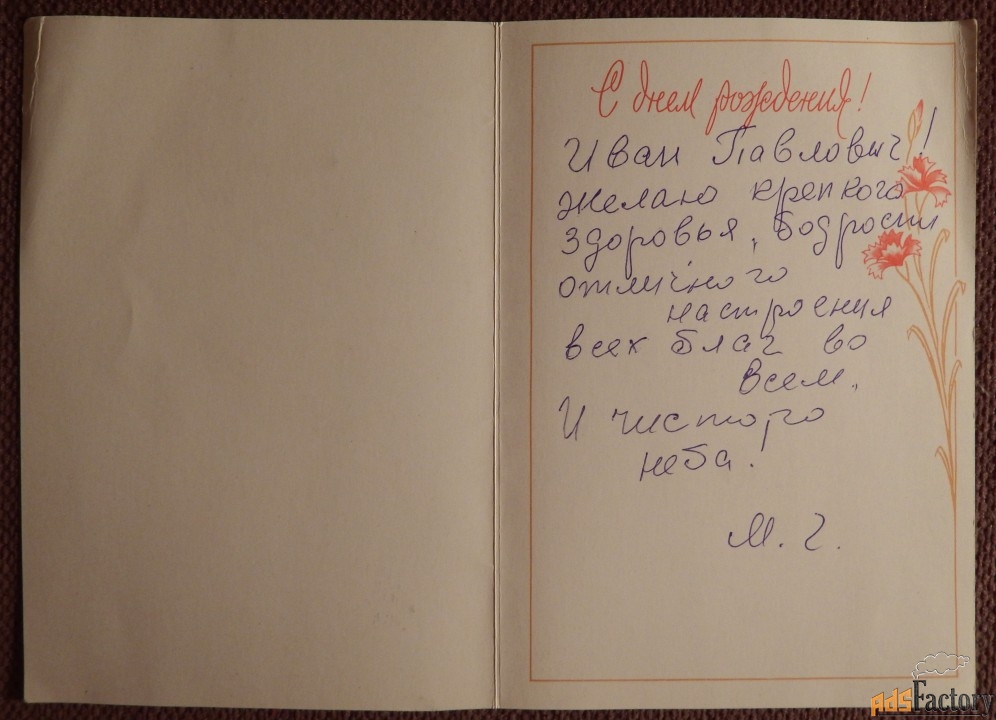 С днем рождения!
Иван Павлович!
Желаю крепкого
здоровья, бодрости
отличного
настроения
всех благ во
всем.
И чистого
неба!
М. Г.
AdsFactory